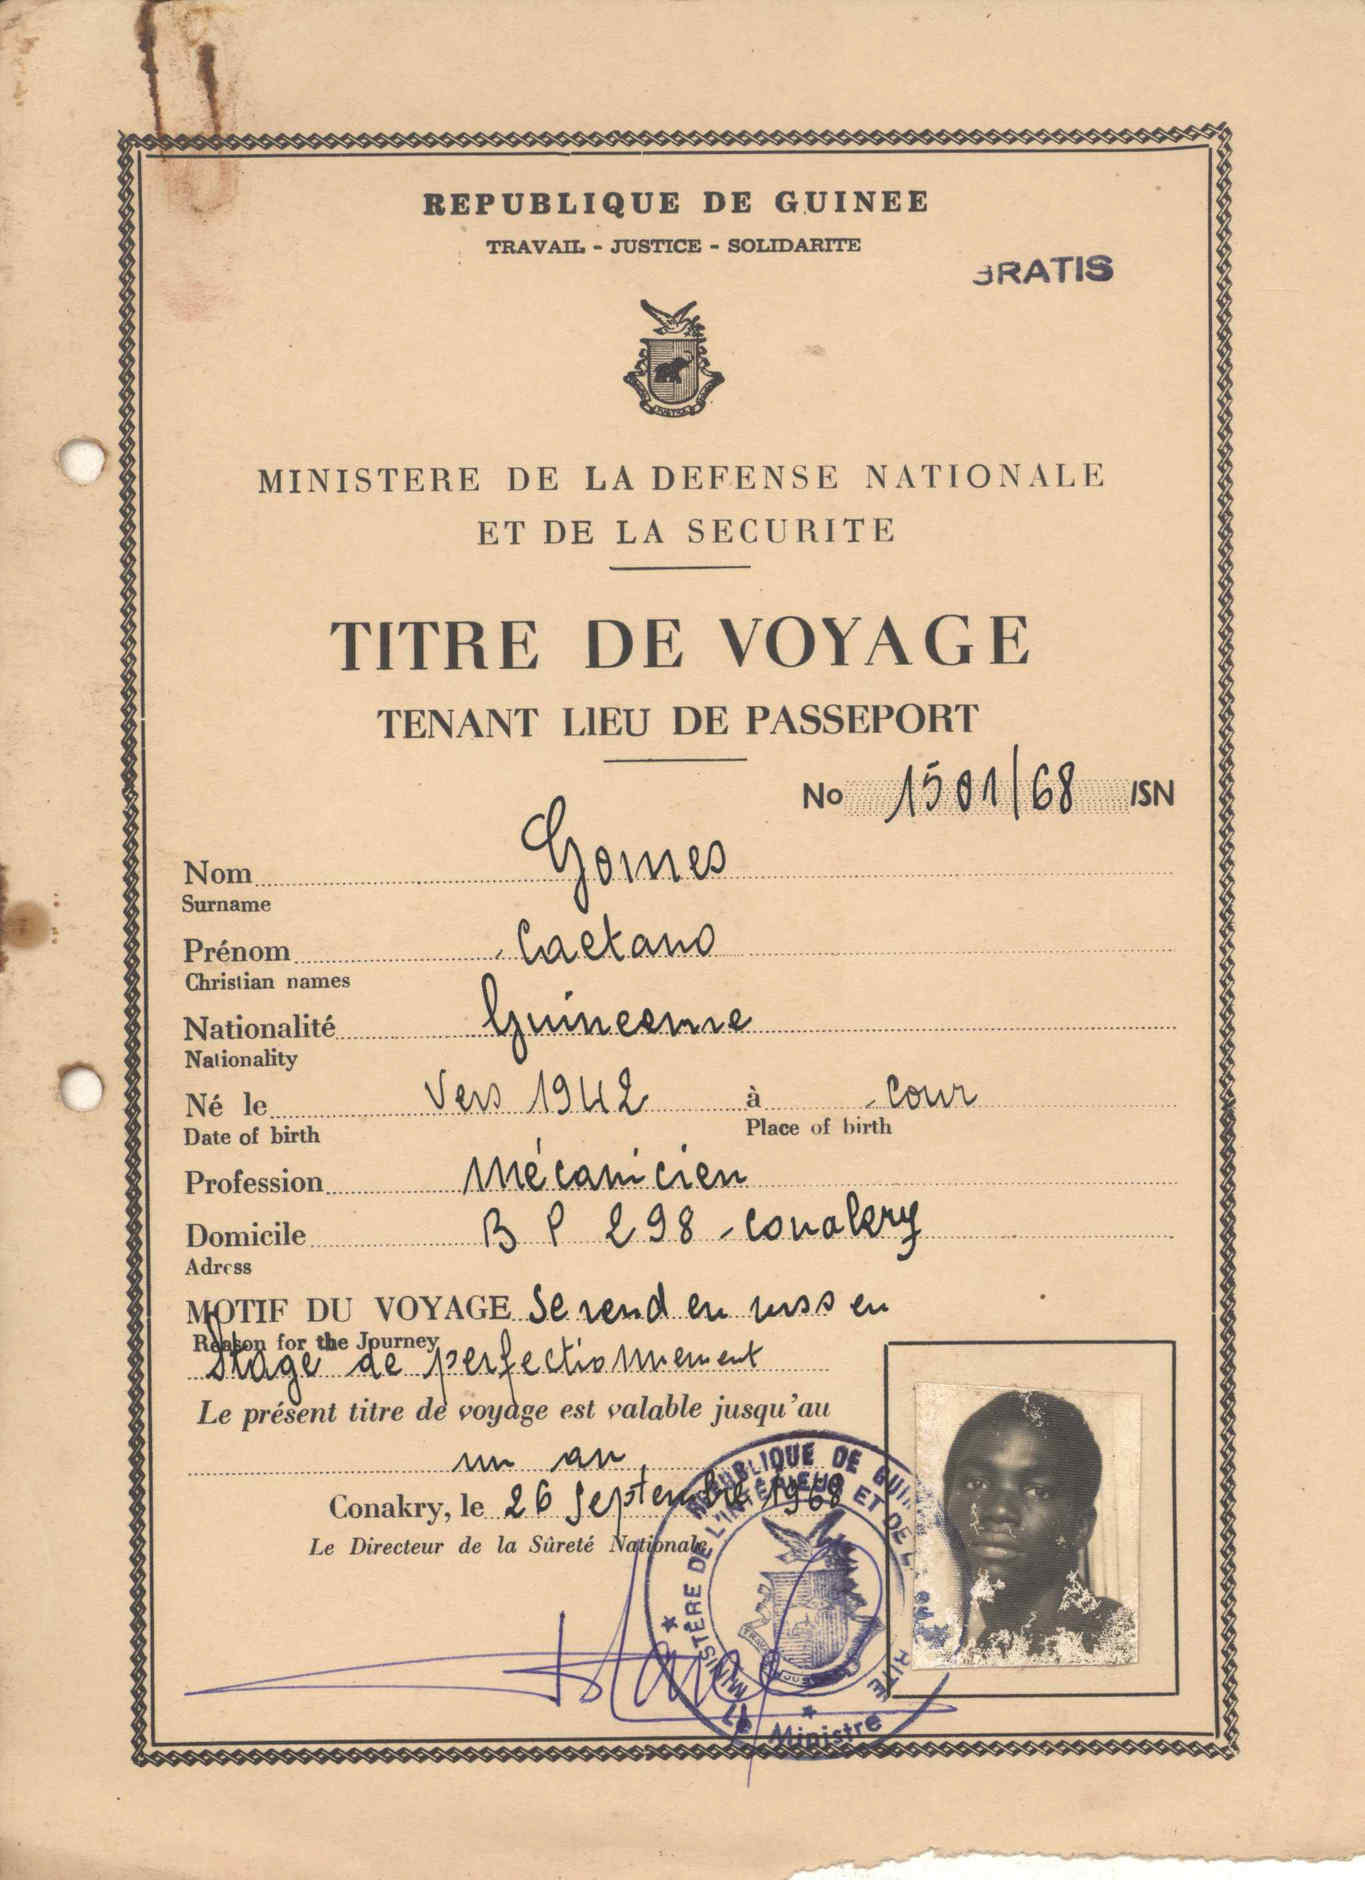 REPUBLIQUE DE GUINEE
TRAVAIL - JUSTICE - SOLIDARITE
GRATIS
JUSTICE
MINISTERE DE LA DEFENSE NATIONALE
ET DE LA SECURITE
TITRE DE VOYAGE
TENANT LIEU DE PASSEPORT
No 1501/68 /SN
Nom Gomes
Surname
Prénom Caetano
Christian names
Nationalité Guineenne
Nationality
Né le Vers 1942 à Cour
Date of birth Place of birth
Profession Mécanicien
Domicile B P 298 - Conakry
Adress
MOTIF DU VOYAGE Se rend en urss en
Reason for the Journey
Stage de perfectionnement
Le présent titre de voyage est valable jusqu'au
un an
Conakry, le 26 Septembre 1968
Le Directeur de la Sûreté Nationale,
REPUBLIQUE DE GUI
MINISTÈRE DE L'INTÉRIEUR ET DE L
RITE
Le Ministre